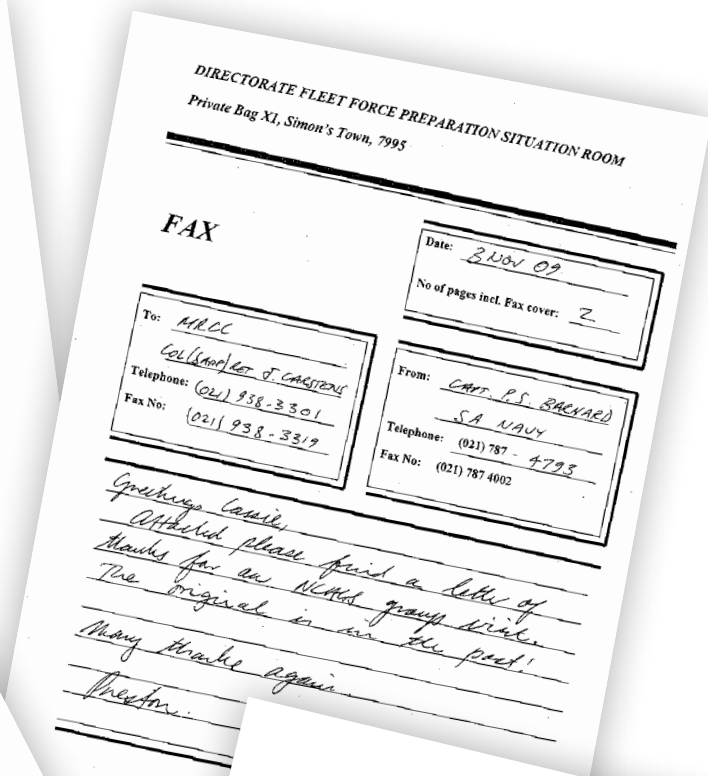 DIRECTORATE FLEET FORCE PREPARATION SITUATION ROOM
Private Bag X1, Simon's Town, 7995
FAX
Date: 3 NOV 09
No of pages incl. Fax cover: 2
To: MRCC
COL(SAAF) RET J. CARSTENS
Telephone: (021) 938-3301
Fax No: (021) 938-3319
From: CAPT. P.S. BARNARD
SA NAVY
Telephone: (021) 787 - 4793
Fax No: (021) 787 4002
Greetings Cassie,
Attached please find a letter of
thanks for our NCAGS group visit.
The original is in the post!
Many thanks again.
Preston.